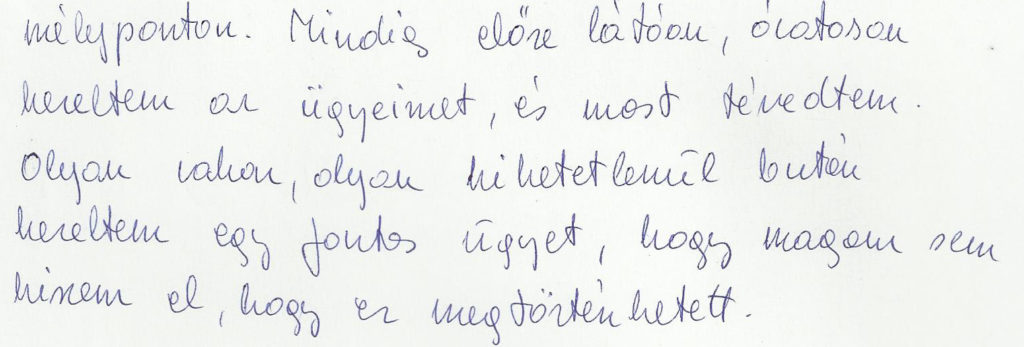 mélyponton. Mindig előre látóan, óvatosan
kezeltem az ügyeimet, és most tévedtem.
Olyan vakon, olyan hihetetlenül bután
kezeltem egy fontos ügyet, hogy magam sem
hiszem el, hogy ez megtörténhetett.